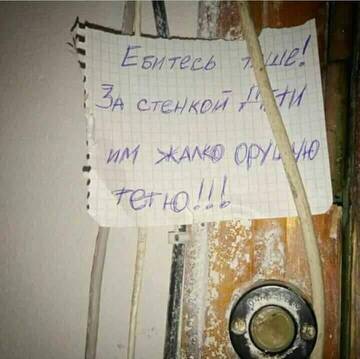 Ебитесь тише!
За стенкой дети
им жалко орущую
тетю!!!